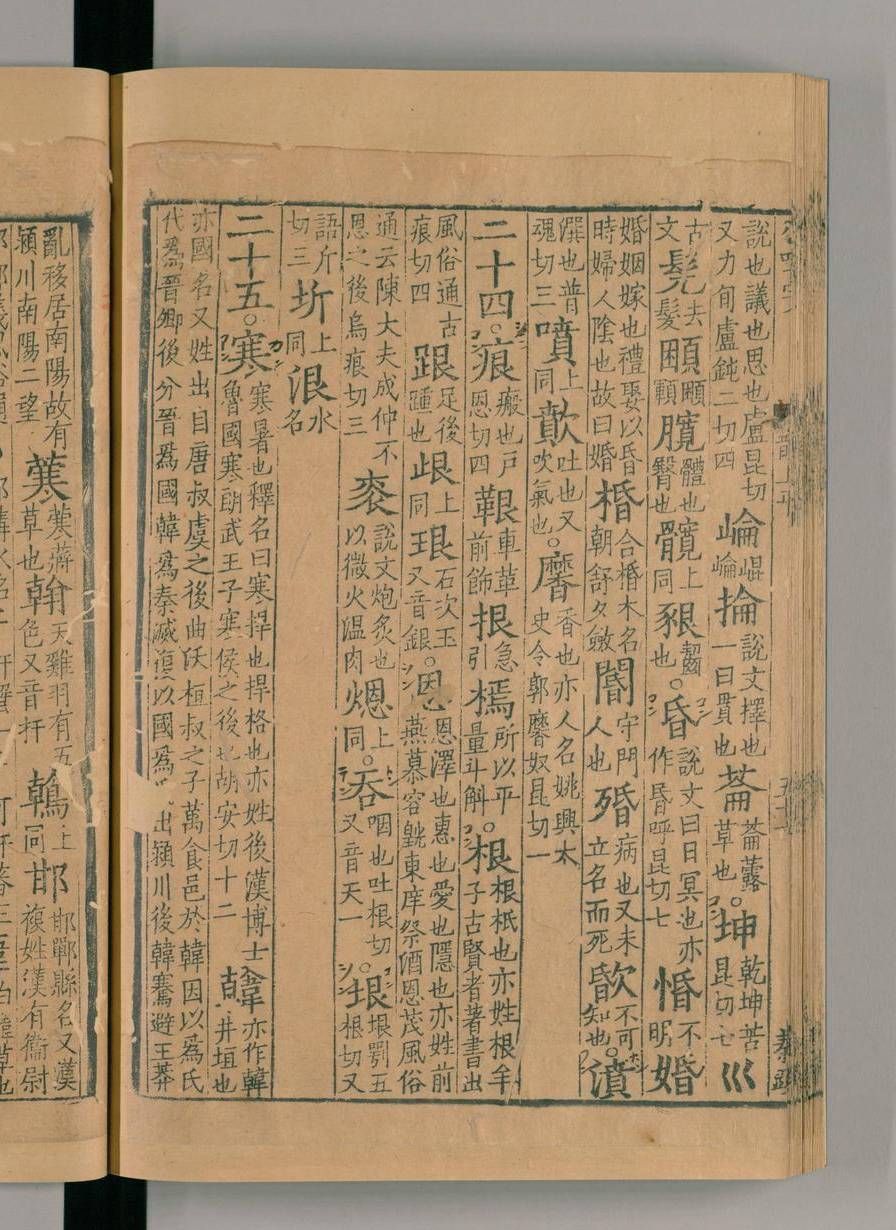 說也議也思也盧昆切又力旬盧鈍二切四崘崐崘掄說文擇也一曰貫也菕菕虂草也。坤乾坤苦昆切七巛
古文髡去髮頣頣顐臗體也臀也髖上同豤齧也。昏說文曰日冥也亦作昬呼昆切七惛不明婚
婚姻嫁也禮娶以昏時婦人陰也故曰婚棔合棔木名朝舒夕斂閽守門人也殙病也又未立名而死不可知也。濆
潠也普魂切三噴上同歕吐也又吹氣也。黁香也亦人名姚興太史令郭黁奴昆切一
二十四。痕瘢也戶恩切四鞎車革前飾拫急引所以平量斗斛。根根柢也亦姓根牟子古賢者著書出
風俗通古痕切四跟足後踵也䟰上同珢石次玉又音銀。恩恩澤也惠也愛也隱也亦姓前燕慕容皝東庠祭酒恩茂風俗
通云陳大夫成仲不恩之後烏痕切三說文炮炙也以微火温肉煾上同。吞咽也吐根切又音天一。垠垠鄂五根切又
語斤切三圻上同泿水名
二十五。寒寒暑也釋名曰寒捍也捍格也亦姓後漢博士魯國寒朗武王子寒侯之後也胡安切十二韓亦作韓井垣也
亦國名又姓出自唐叔虞之後曲沃桓叔之子萬食邑於韓因以爲氏代爲晉卿後分晉爲國韓爲秦滅復以國爲出潁川後韓騫避王莽
亂移居南陽故有潁川南陽二望𦾮蔣草也翰天雞羽有五色又音扞鶾上同邯邯鄲縣名又漢複姓漢有衞尉